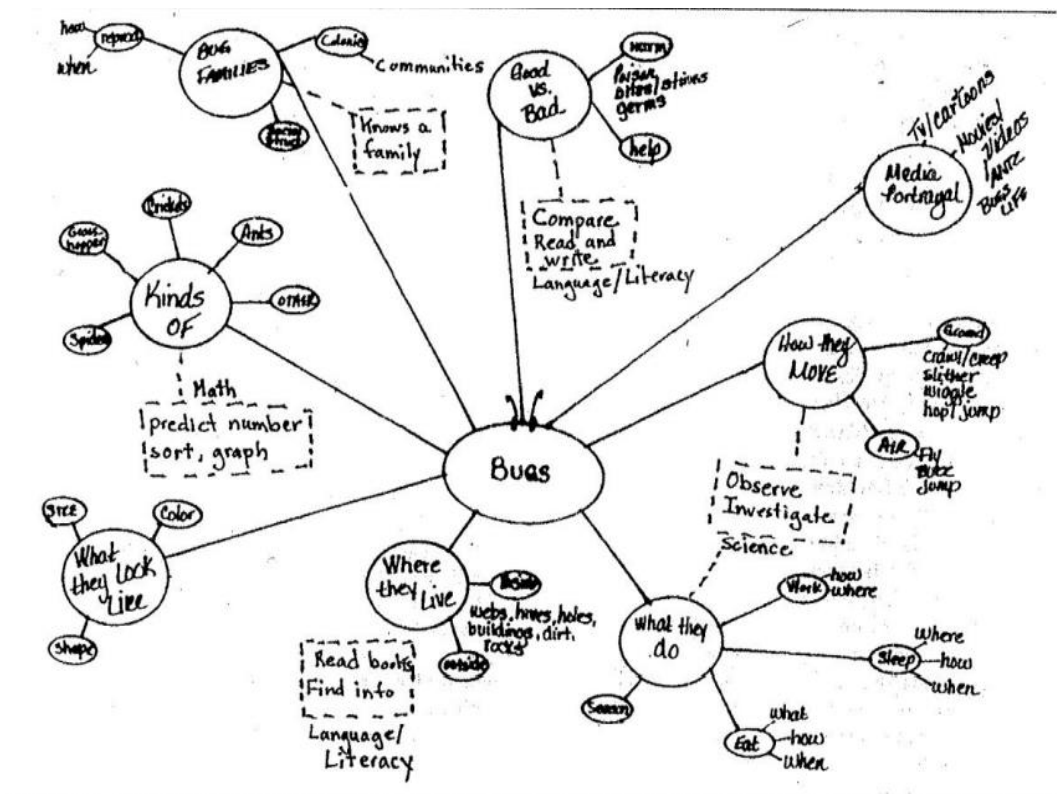 how
reprod
when
BUG
FAMILIES
Colonies
Communities
Social
Struct.
Knows a
family
Good
vs.
Bad
HARM
Poison
bites/stings
germs
help
Compare
Read and
write
Language/Literacy
TV/cartoons
Movies/
Videos
ANTZ
BUGS
LIFE
Media
Portrayal
Crickets
Grass
hopper
Ants
OTHER
Spiders
Kinds
OF
Math
predict number
sort, graph
How they
MOVE
Ground
crawl/creep
slither
wiggle
hop/jump
AIR
Fly
BUZZ
jump
Observe
Investigate
Science
Bugs
SIZE
Color
What
they LOOK
LIKE
Shape
Where
they Live
Inside
webs, hives, holes,
buildings, dirt,
rocks
outside
Read books
Find info
Language/
Literacy
What they
do
Work
how
where
Sleep
where
how
when
Season
Eat
what
how
when